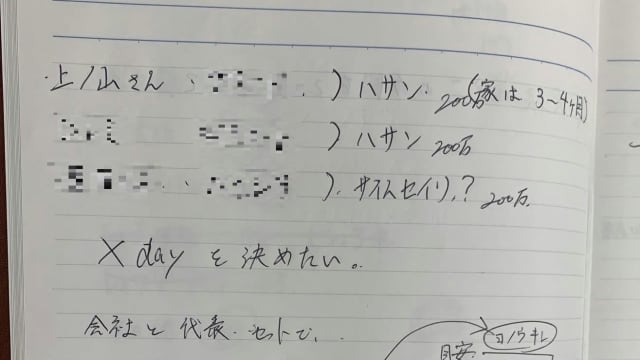 ・上ノ山さん、 )ハサン. 200万(家は3~4ヶ月)
)ハサン 200万
、 ). サイムセイリ.? 200万.
X dayを決めたい。
会社と代表.セットで..
目安 ヨノウキレ